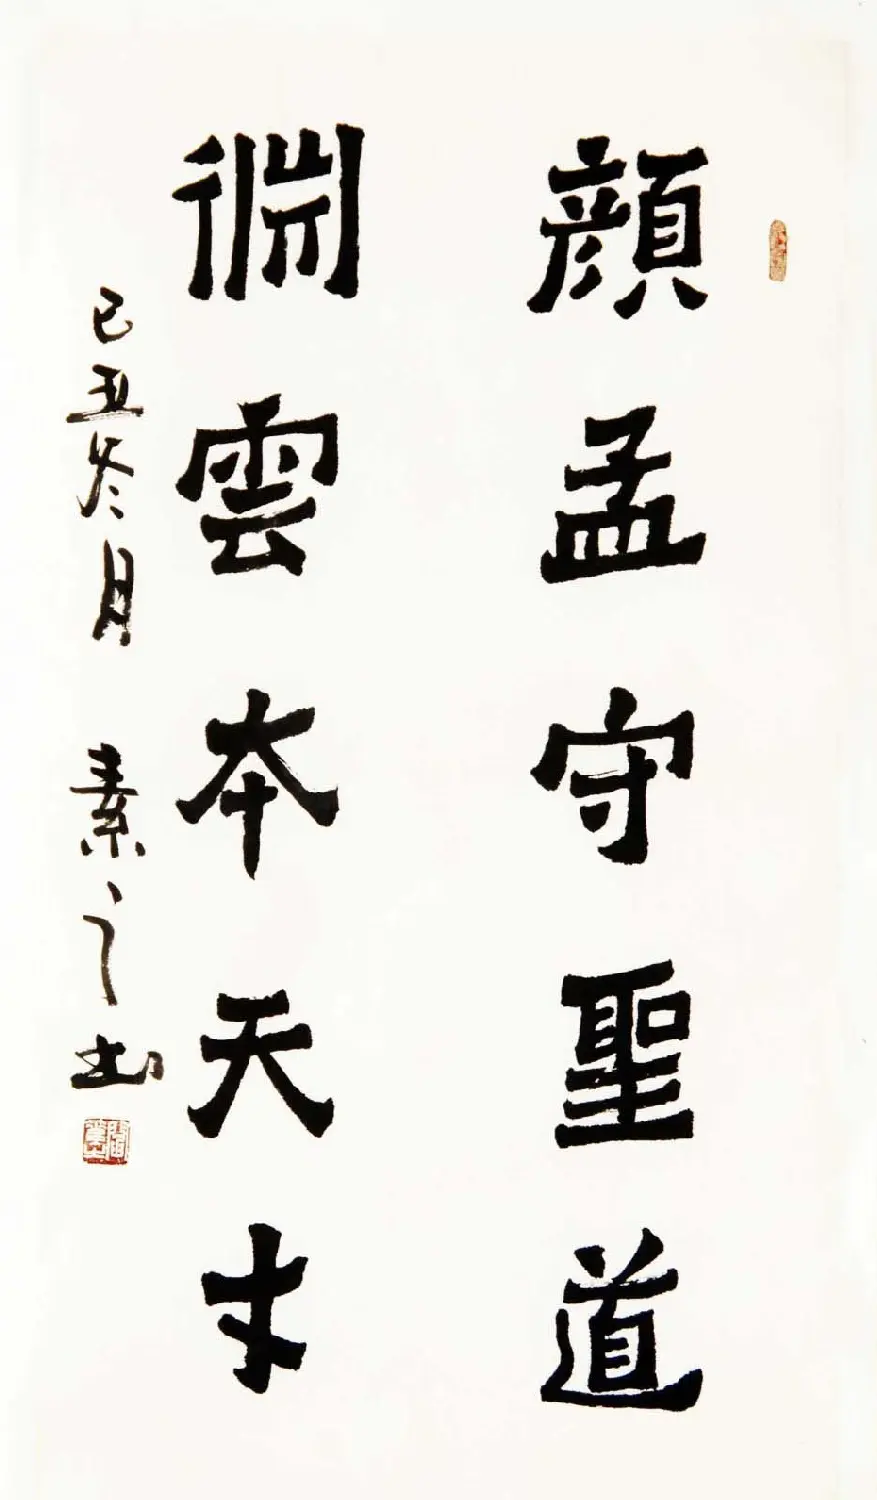 顏孟守聖道
淵雲本天才
己丑冬月 素之书